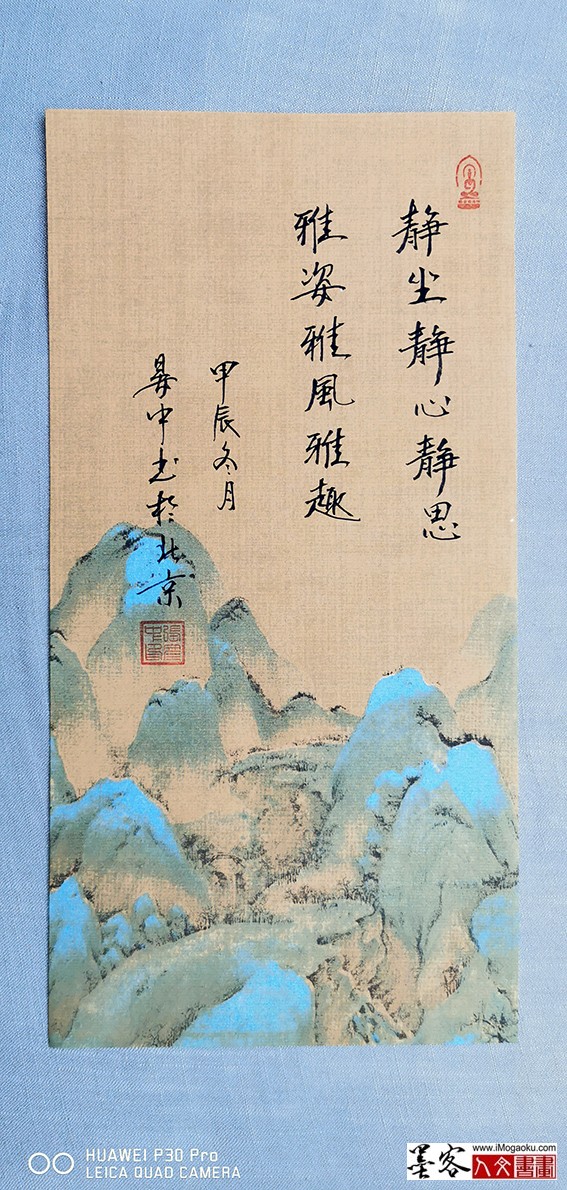 静坐静心静思
雅姿雅風雅趣
甲辰冬月
中书於北京
HUAWEI P30 Pro
LEICA QUAD CAMERA
www.iMogaoku.com
墨客
人文書畫